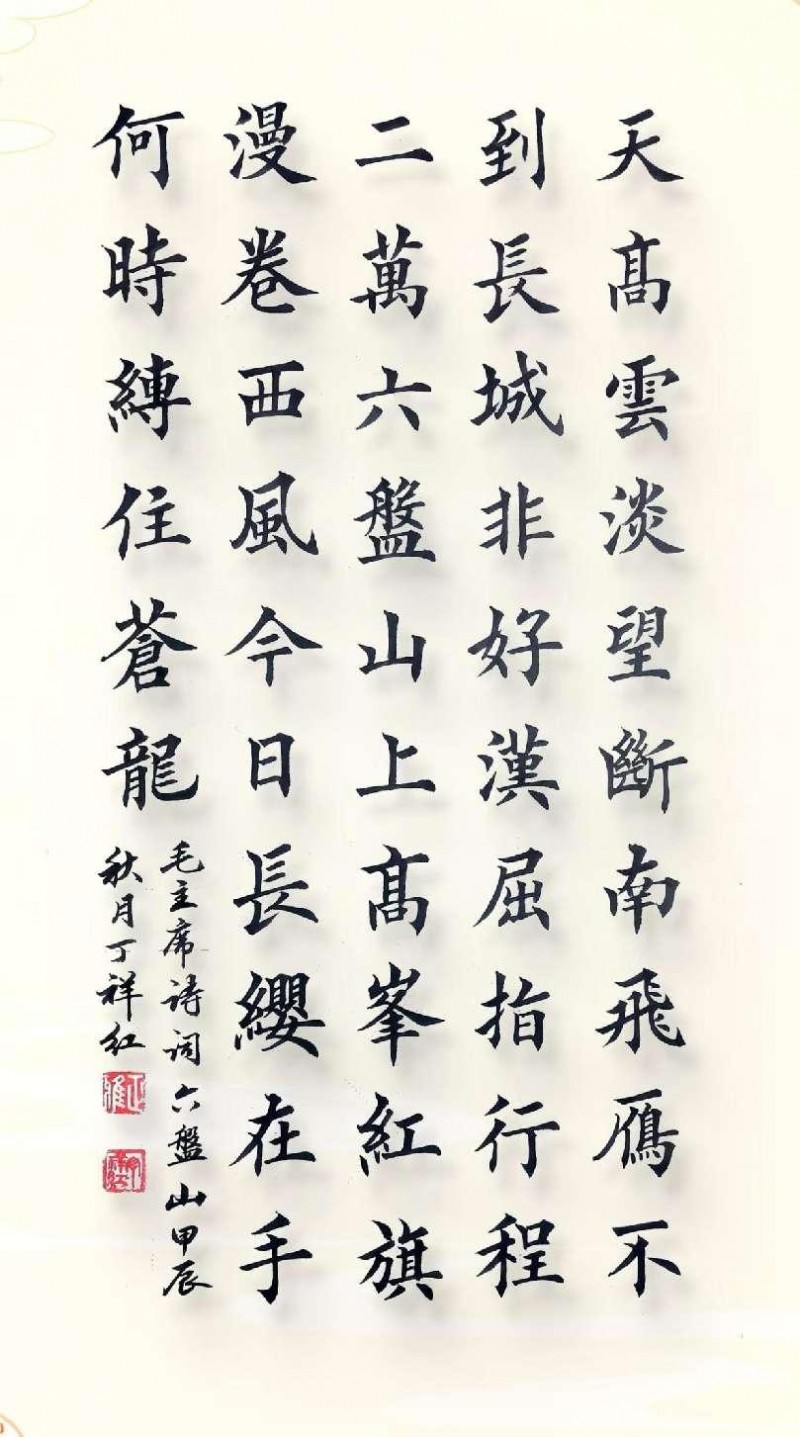 天高雲淡望斷南飛鴈不
到長城非好漢屈指行程
二萬六盤山上高峯紅旗
漫卷西風今日長纓在手
何時縛住蒼龍
毛主席詩词六盤山甲辰
秋月丁祥红